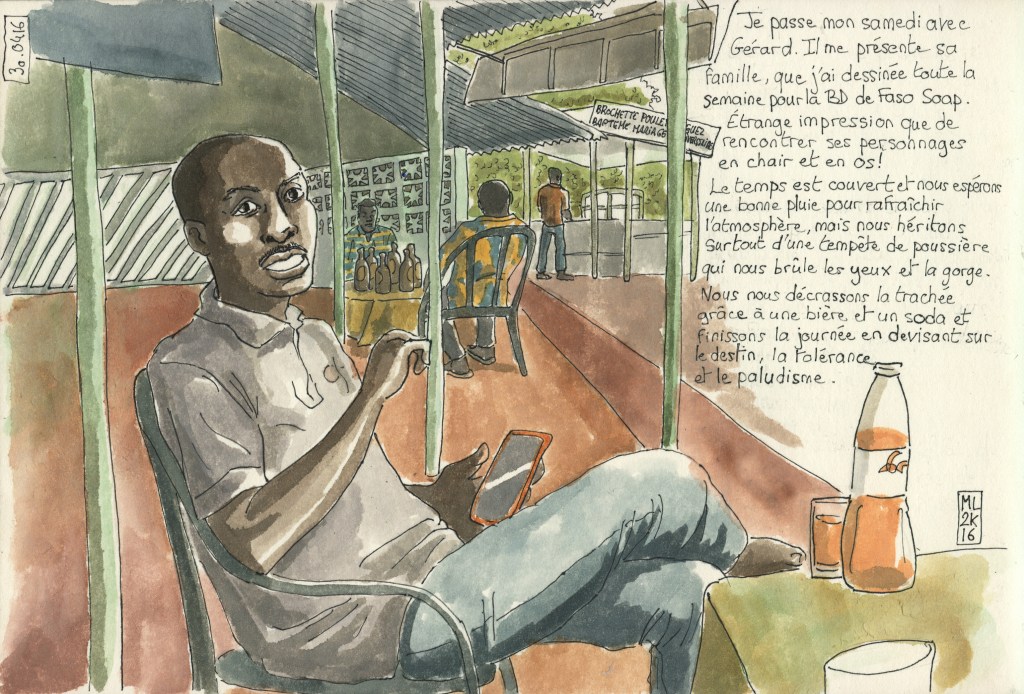 30.0416
Je passe mon samedi avec
Gérard. Il me présente sa
famille, que j'ai dessinée toute la
semaine pour la BD de Faso Soap.
Étrange impression que de
rencontrer ses personnages
en chair et en os!
Le temps est couvert et nous espérons
une bonne pluie pour rafraîchir
l'atmosphère, mais nous héritons
surtout d'une tempête de poussière
qui nous brûle les yeux et la gorge.
Nous nous décrassons la trachee
grâce à une bière et un soda et
finissons la journée en devisant sur
le destin, la tolérance
et le paludisme.
BROCHETTE POULET
BAPTEME MARIAGE
ML
2K
16